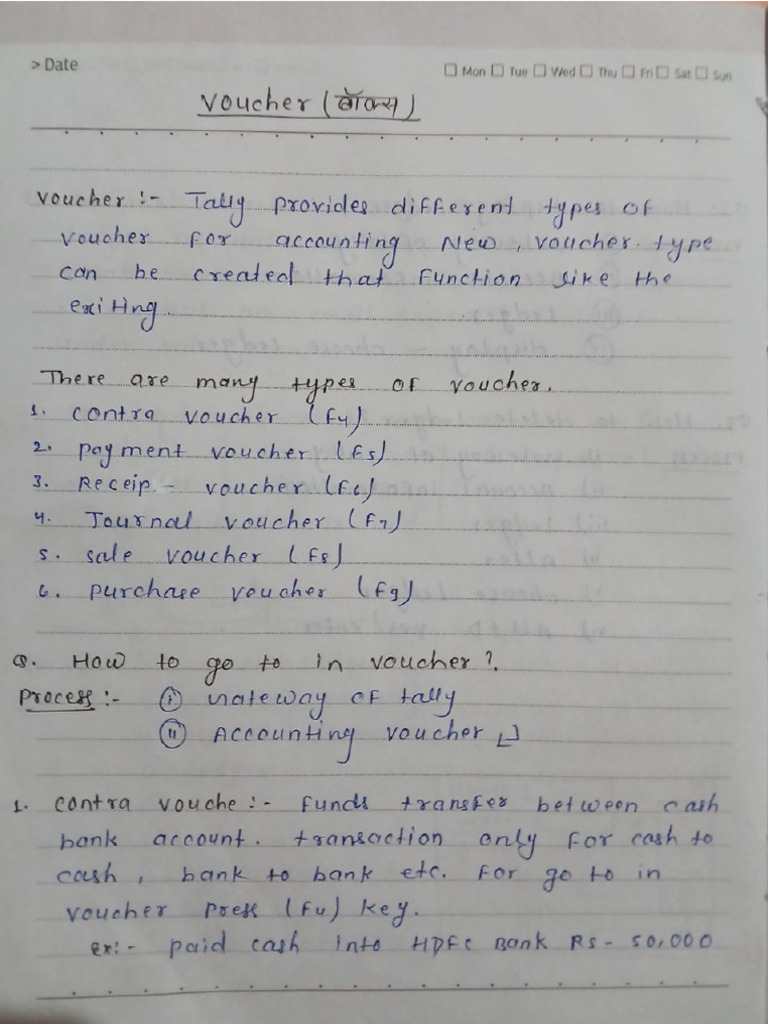 > Date
Mon Tue Wed Thu Fri Sat Sun
Voucher (बॉक्स)
Voucher :- Tally provides different types of
voucher for accounting New, voucher. type
can be created that function like the
exiting.
There are many types of voucher.
1. contra voucher (F4)
2. payment voucher (F5)
3. Receip - voucher (F6)
4. Journal voucher (F7)
5. sale voucher (F8)
6. purchase voucher (F9)
Q. How to go to in voucher?
Process :- (i) Gateway of tally
(ii) Accounting voucher
1. contra vouche :- funds transfer between cash
bank account. transaction only for cash to
cash, bank to bank etc. For go to in
voucher press (F4) key.
ex:- paid cash into HDFC Bank Rs - 50,000